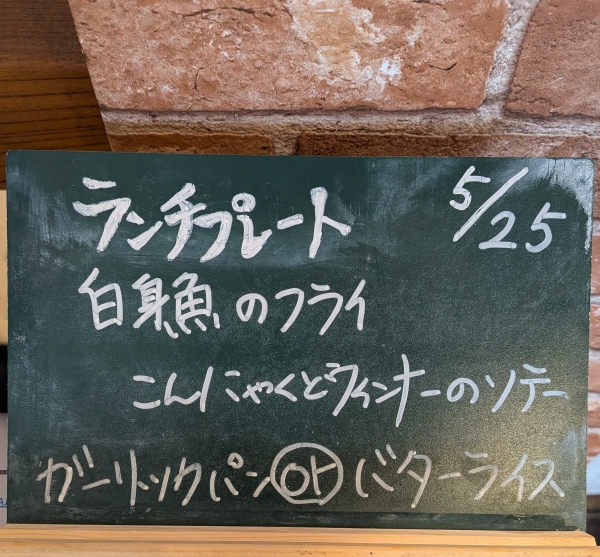 ランチプレート 5/25
白身魚のフライ
こんにゃくとウインナーのソテー
ガーリックパン or バターライス